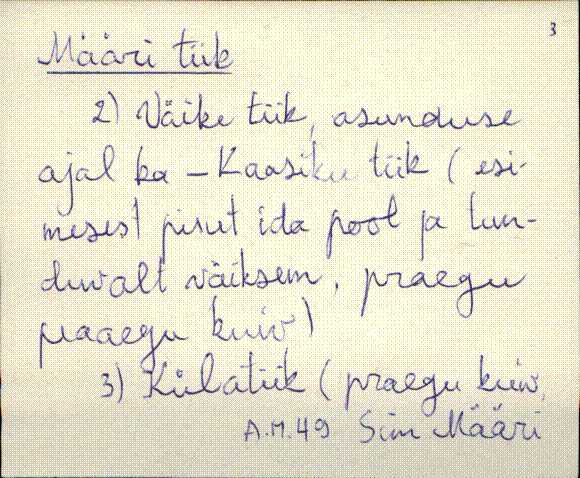 3
Määri tiik
2) Väike tiik, asunduse
ajal ka – Kaasiku tiik (esi-
mesest pisut ida pool ja tun-
duvalt väiksem, praegu
peaaegu kuiv)
3) Külatiik (praegu kuiv,
A.M.49 Sim Määri